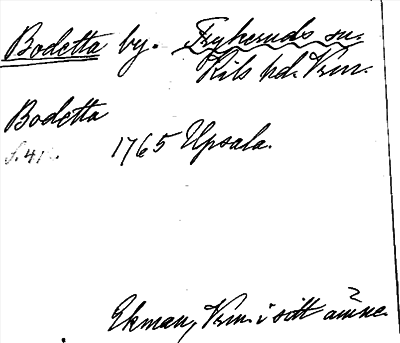 Bodetta by. Frykeruds sn.
Kils hd. Vrm.
Bodetta
s. 41.
1765 Upsala.
Ekman, Vrm. i sitt ämne.